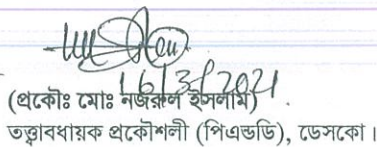 16/3/2021
(প্রকৌঃ মোঃ নজরুল ইসলাম)
তত্ত্বাবধায়ক প্রকৌশলী (পিএন্ডডি), ডেসকো।